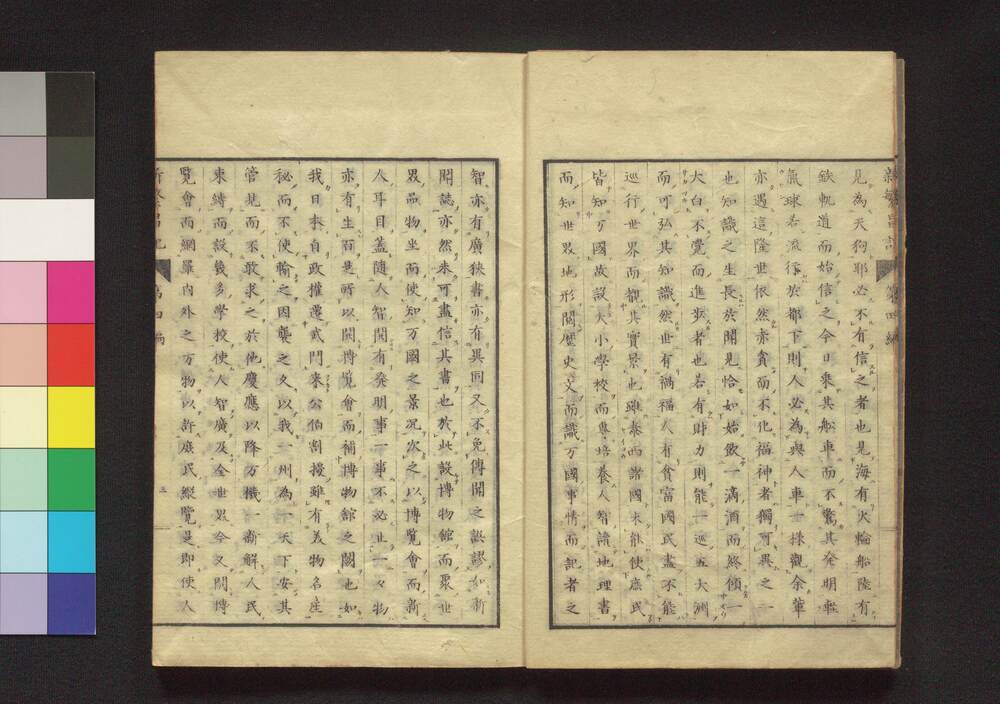 見為天狗耶必不有信之者也見海有火輪船陸有
鉄軌道而始信之今日乗其船車而不驚其発明軽
氣球若流行於都下則人必為與人車一様觀余輩
亦遇這隆世依然亦貧而不化福神者獨可異之一
也知識之生長於聞見恰如始飲一滴酒而終傾一
大白不覺而進歩者也若有財力則能一巡五大洲
而可弘其知識然世有禍福人有貧富國民盡不能
巡行世界而觀其實景也雖泰西諸國未能使庶民
皆知万國故設大小學校而專培養人智讀地理書
而知世界地形閲歴史文而識万國事情而記者之
智亦有廣狭書亦有異同又不免傳聞之訛謬如新
聞誌亦然未可盡信其書也於此設博物館而聚世
界品物坐而使知万國之景况次之以博覧會而新
人耳目蓋随人智開有発明事一事不必止一々物
亦有生百是所以開博覧會而補博物館之闕也如
我日本自政權遷武門来公伯割據雖有美物名産
秘而不使輸之因襲之久以我一州為一天下安其
管見而不敢求之於他慶應以降万機一新解人民
束縛而設幾多學校使人智廣及全世界今又開博
覧會而網羅内外之万物以許庶民縦覧是即使人
新繁昌記 第四編 三